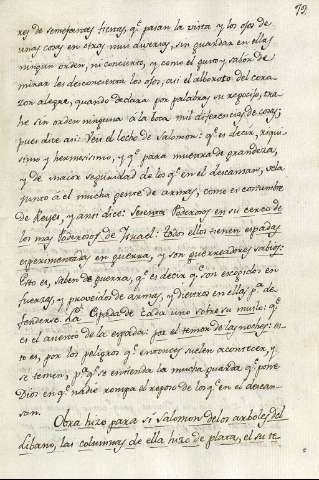 93.
res de semejantes fiestas, q.e pasan la vista y los ojos de
unas cosas en otras muy diversas, sin guardar en ellas
ningun orden, ni concierto, y como el gusto y sabor de
mirar les desconcierta los ojos, asi el alboroto del cora
zon alegre, quando declara por palabras su regocijo, tra
he sin orden ninguna à la boca mil diferencias de cosas,
pues dice asi: Veis el lecho de Salomon: q.e es decir, riqui
simo y hermosisimo, y q.e para muestra de grandeza,
y de maior seguridad de los q.e en èl descansan, vela
junto à el mucha gente de armas, como es costumbre
de Reyes, y ansi dice: Sesenta Poderosos en su cerco de
los mas Poderosos de Israel: todos ellos tienen espadas
esperimentados en guerra, y son guerreadores sabios:
Esto es, saben de guerra, q.e es decir q.e son escogidos en
fuerzas, y proveidos de armas, y diestros en ellas p.a de
fenderse. La Espada de cada uno sobre su muslo: q.e
es el asiento de la espada: por el temor de las noches: es
to es, por los peligros q.e entonces suelen acontecer, y
se temen, p.r q.e se entienda la mucha guarda q.e pone
Dios en q.e nadie rompa el reposo de los q.e en èl descan
san.
Obra hizo para sì Salomon de los arboles del
Libano, las columnas de ella hizo de plata, el su te